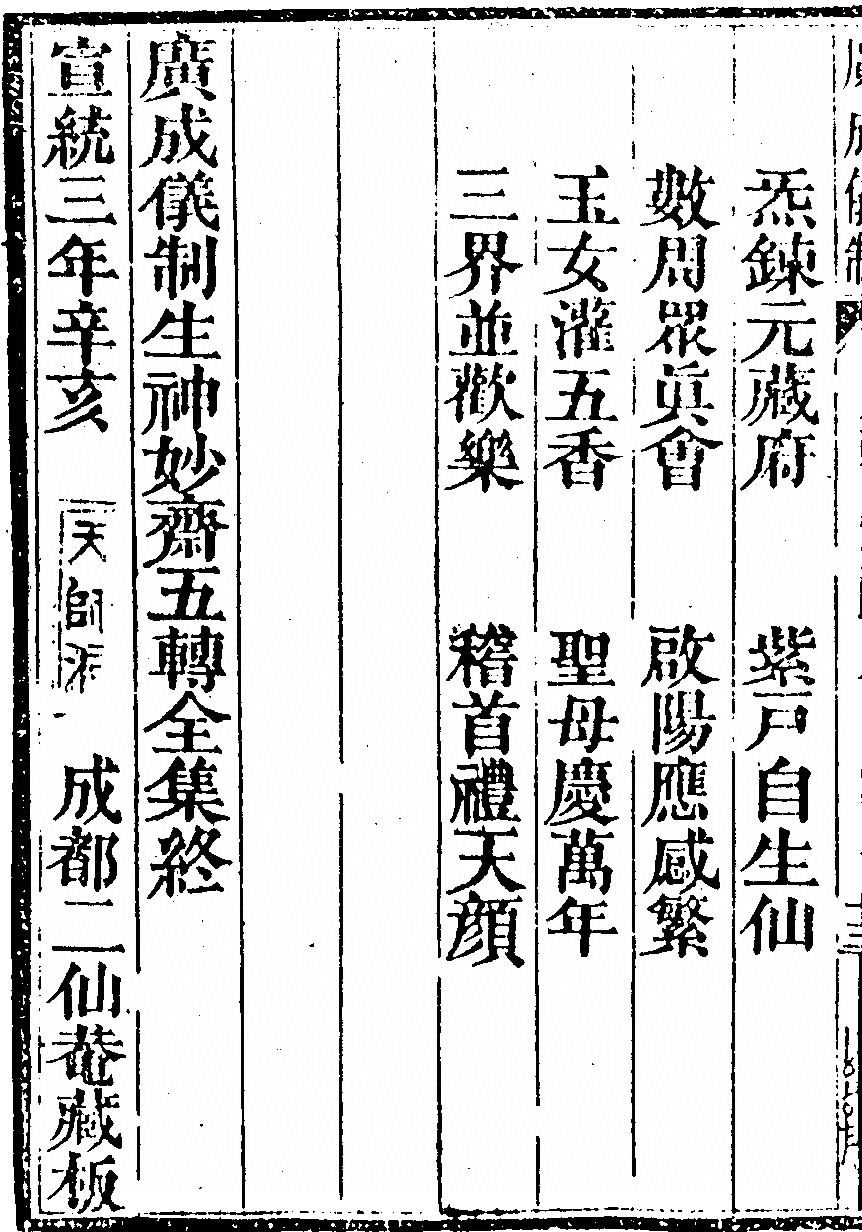 廣成儀制
炁鍊元藏府　紫戸自生仙
數周眾真會　啟陽應感繁
玉女灌五香　聖母慶萬年
三界並歡樂　稽首禮天顏
廣成儀制生神妙齋五轉全集終
宣統三年辛亥　天師派　成都二仙菴藏板